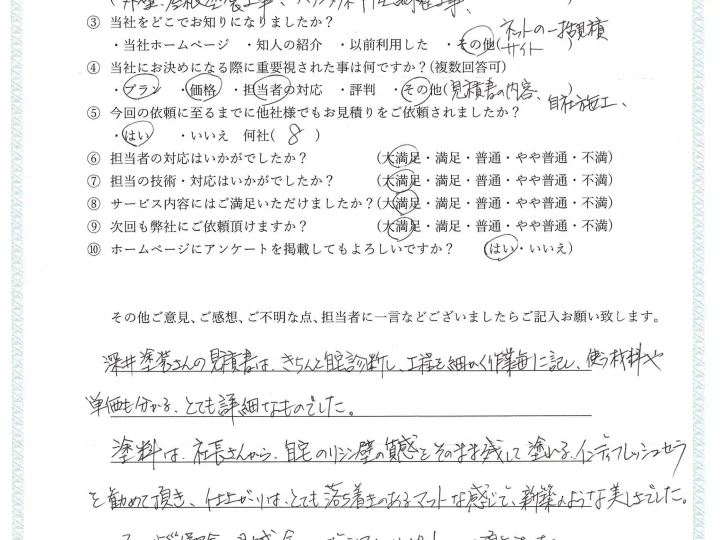 外壁・屋根塗装工事、
③ 当社をどこでお知りになりましたか?
・当社ホームページ ・知人の紹介 ・以前利用した ・その他(ネットの一括見積サイト)
④ 当社にお決めになる際に重要視された事は何ですか?(複数回答可)
・プラン ・価格 ・担当者の対応 ・評判 ・その他(見積書の内容、自社施工、
⑤ 今回の依頼に至るまでに他社様でもお見積りをご依頼されましたか?
・はい ・いいえ 何社( 8 )
⑥ 担当者の対応はいかがでしたか? (大満足・満足・普通・やや普通・不満)
⑦ 担当の技術・対応はいかがですか? (大満足・満足・普通・やや普通・不満)
⑧ サービス内容にはご満足いただけましたか?(大満足・満足・普通・やや普通・不満)
⑨ 次回も弊社にご依頼頂けますか? (大満足・満足・普通・やや普通・不満)
⑩ ホームページにアンケートを掲載してもよろしいですか? (はい・いいえ)
その他ご意見、ご感想、ご不明な点、担当者に一言などございましたらご記入お願い致します。
深井塗装さんの見積書は、きちんと自宅診断し、工程を細かく作業毎に記し、使う材料や
単価も分かる、とても詳細なものでした。
塗料は、社長さんから、自宅のリシン壁の質感をそのまま残して塗れる、インディフレッシュセラ
を勧めて頂き、仕上がりは、とても落ち着きのあるマットな感じで、新築のような美しさでした。